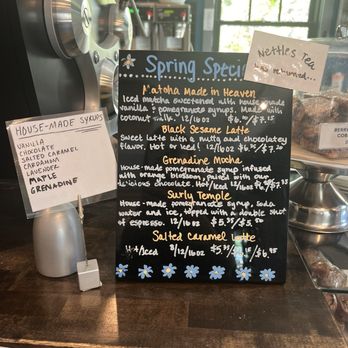 Spring Speci
Nettles Tea
has returned...
Matcha Made in Heaven
Iced matcha sweetened with house-made
vanilla + pomegranate syrups. Made with
coconut milk. 12/16oz
Black Sesame Latte
Sweet latte with a nutty and chocolatey
flavor. Hot or Iced! 12/16oz
Grenadine Mocha
House-made pomegranate syrup infused
with orange blossom, paired with our
delicious chocolate. Hot/iced 12/16oz
Surly Temple
House-made pomegranate syrup, soda
water and ice, topped with a double shot
of espresso. 12oz
Salted Caramel Latte
Hot/Iced 8/12/16oz
HOUSE-MADE SYRUPS
VANILLA
CHOCOLATE
SALTED CARAMEL
CARDAMOM
LAVENDER
MAPLE
GRENADINE
BERRY